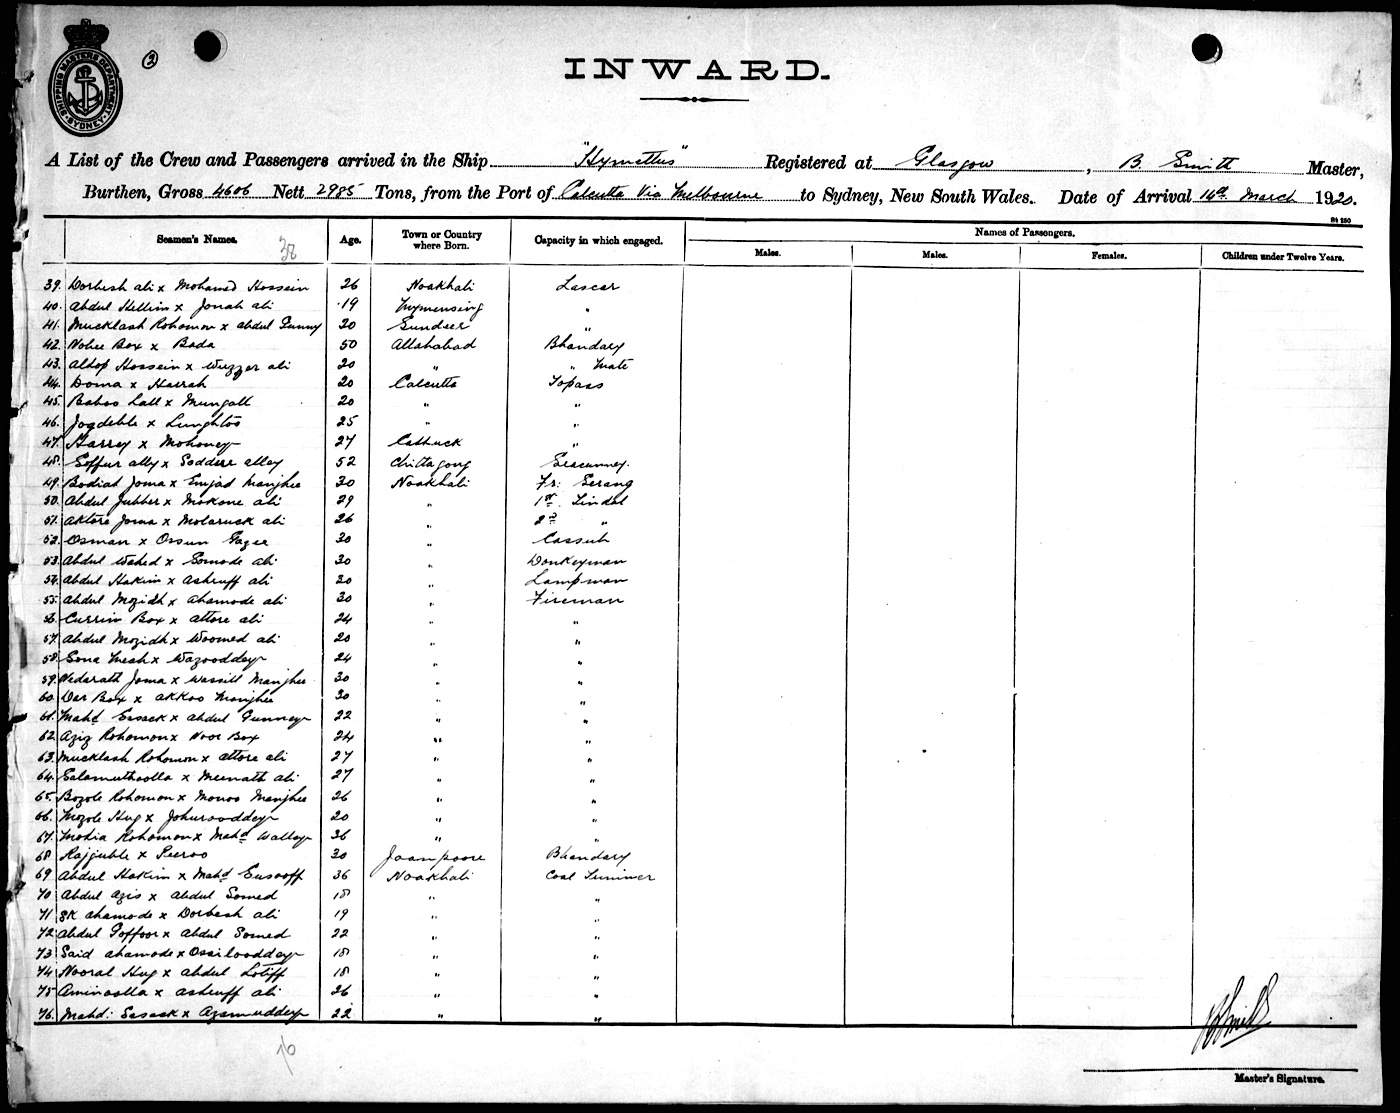 SHIPPING MASTERS DEPARTMENT SYDNEY
2
INWARD.
A List of the Crew and Passengers arrived in the Ship "Hymettus" Registered at Glasgow, B. Smith Master,
Burthen, Gross 4606 Nett 2985 Tons, from the Port of Calcutta Via Melbourne to Sydney, New South Wales. Date of Arrival 14th March 1920.
St 250
Seamen's Names. Age. Town or Country where Born. Capacity in which engaged. Names of Passengers.
Males. Males. Females. Children under Twelve Years.
38
39. Dorbesh ali x Mohamed Hossein 26 Noakhali Lascar
40. Abdul Hellim x Jonab ali 19 Mymensing "
41. Mucklash Rohomon x abdul Gunny 20 Sundeer "
42. Nobee Box x Bada 50 Allahabad Bhandary
43. Altop Hossein x Wuzzer ali 20 " " Mate
44. Doma x Harrah 20 Calcutta Topass
45. Baboo Lall x Mungall 20 " "
46. Jogdeble x Lunghtoo 25 " "
47. Harrey x Mohoney 27 Cathuck "
48. Goffur ally x Soddere alley 52 Chittagong Seacunney.
49. Bodiah Joma x Emjad Manjhee 30 Noakhali Fr: Serang
50. Abdul Jubber x Mokone ali 29 " 1st Tindal
51. Aktore Joma x Molaruck ali 26 " 2nd "
52. Osman x Ossun Gazee 30 " Cassub
53. Abdul Wahed x Somode ali 30 " Donkeyman
54. Abdul Hakim x Ashruff ali 20 " Lampman
55. Abdul Mozidh x Ahamode ali 30 " Fireman
56. Currim Box x attore ali 24 " "
57. Abdul Mozidh x Woomed ali 20 " "
58. Sona Meah x Wazooddey 24 " "
59. Nedarath Joma x Wassill Manjhee 30 " "
60. Dar Box x Akkoo Manjhee 30 " "
61. Mahd Essack x abdul Gunney 22 " "
62. Aziz Rohomon x Noor Box 24 " "
63. Mucklash Rohomon x attore ali 27 " "
64. Salamuthoolla x Meenath ali 27 " "
65. Bozole Rohomon x Monoo Manjhee 26 " "
66. Mozole Huq x Johurooddey 20 " "
67. Mokia Rohomon x Mahd Walley 36 " "
68 Rajjuble x Peeroo 30 Joanpoore Bhandary
69 Abdul Hakim x Mahd Eusooff 36 Noakhali Coal Trimmer
70 Abdul Azis x Abdul Somed 18 " "
71 SK Ahamode x Dorbesh ali 19 " "
72 Abdul Goffoor x Abdul Somed 22 " "
73 Said ahamode x Ossilooddey 18 " "
74 Nooral Huq x abdul Lotiff 18 " "
75 Aminoolla x ashruff ali 26 " "
76. Mahd: Essack x Azamuddey 22 " "
B Smith
Master's Signature.